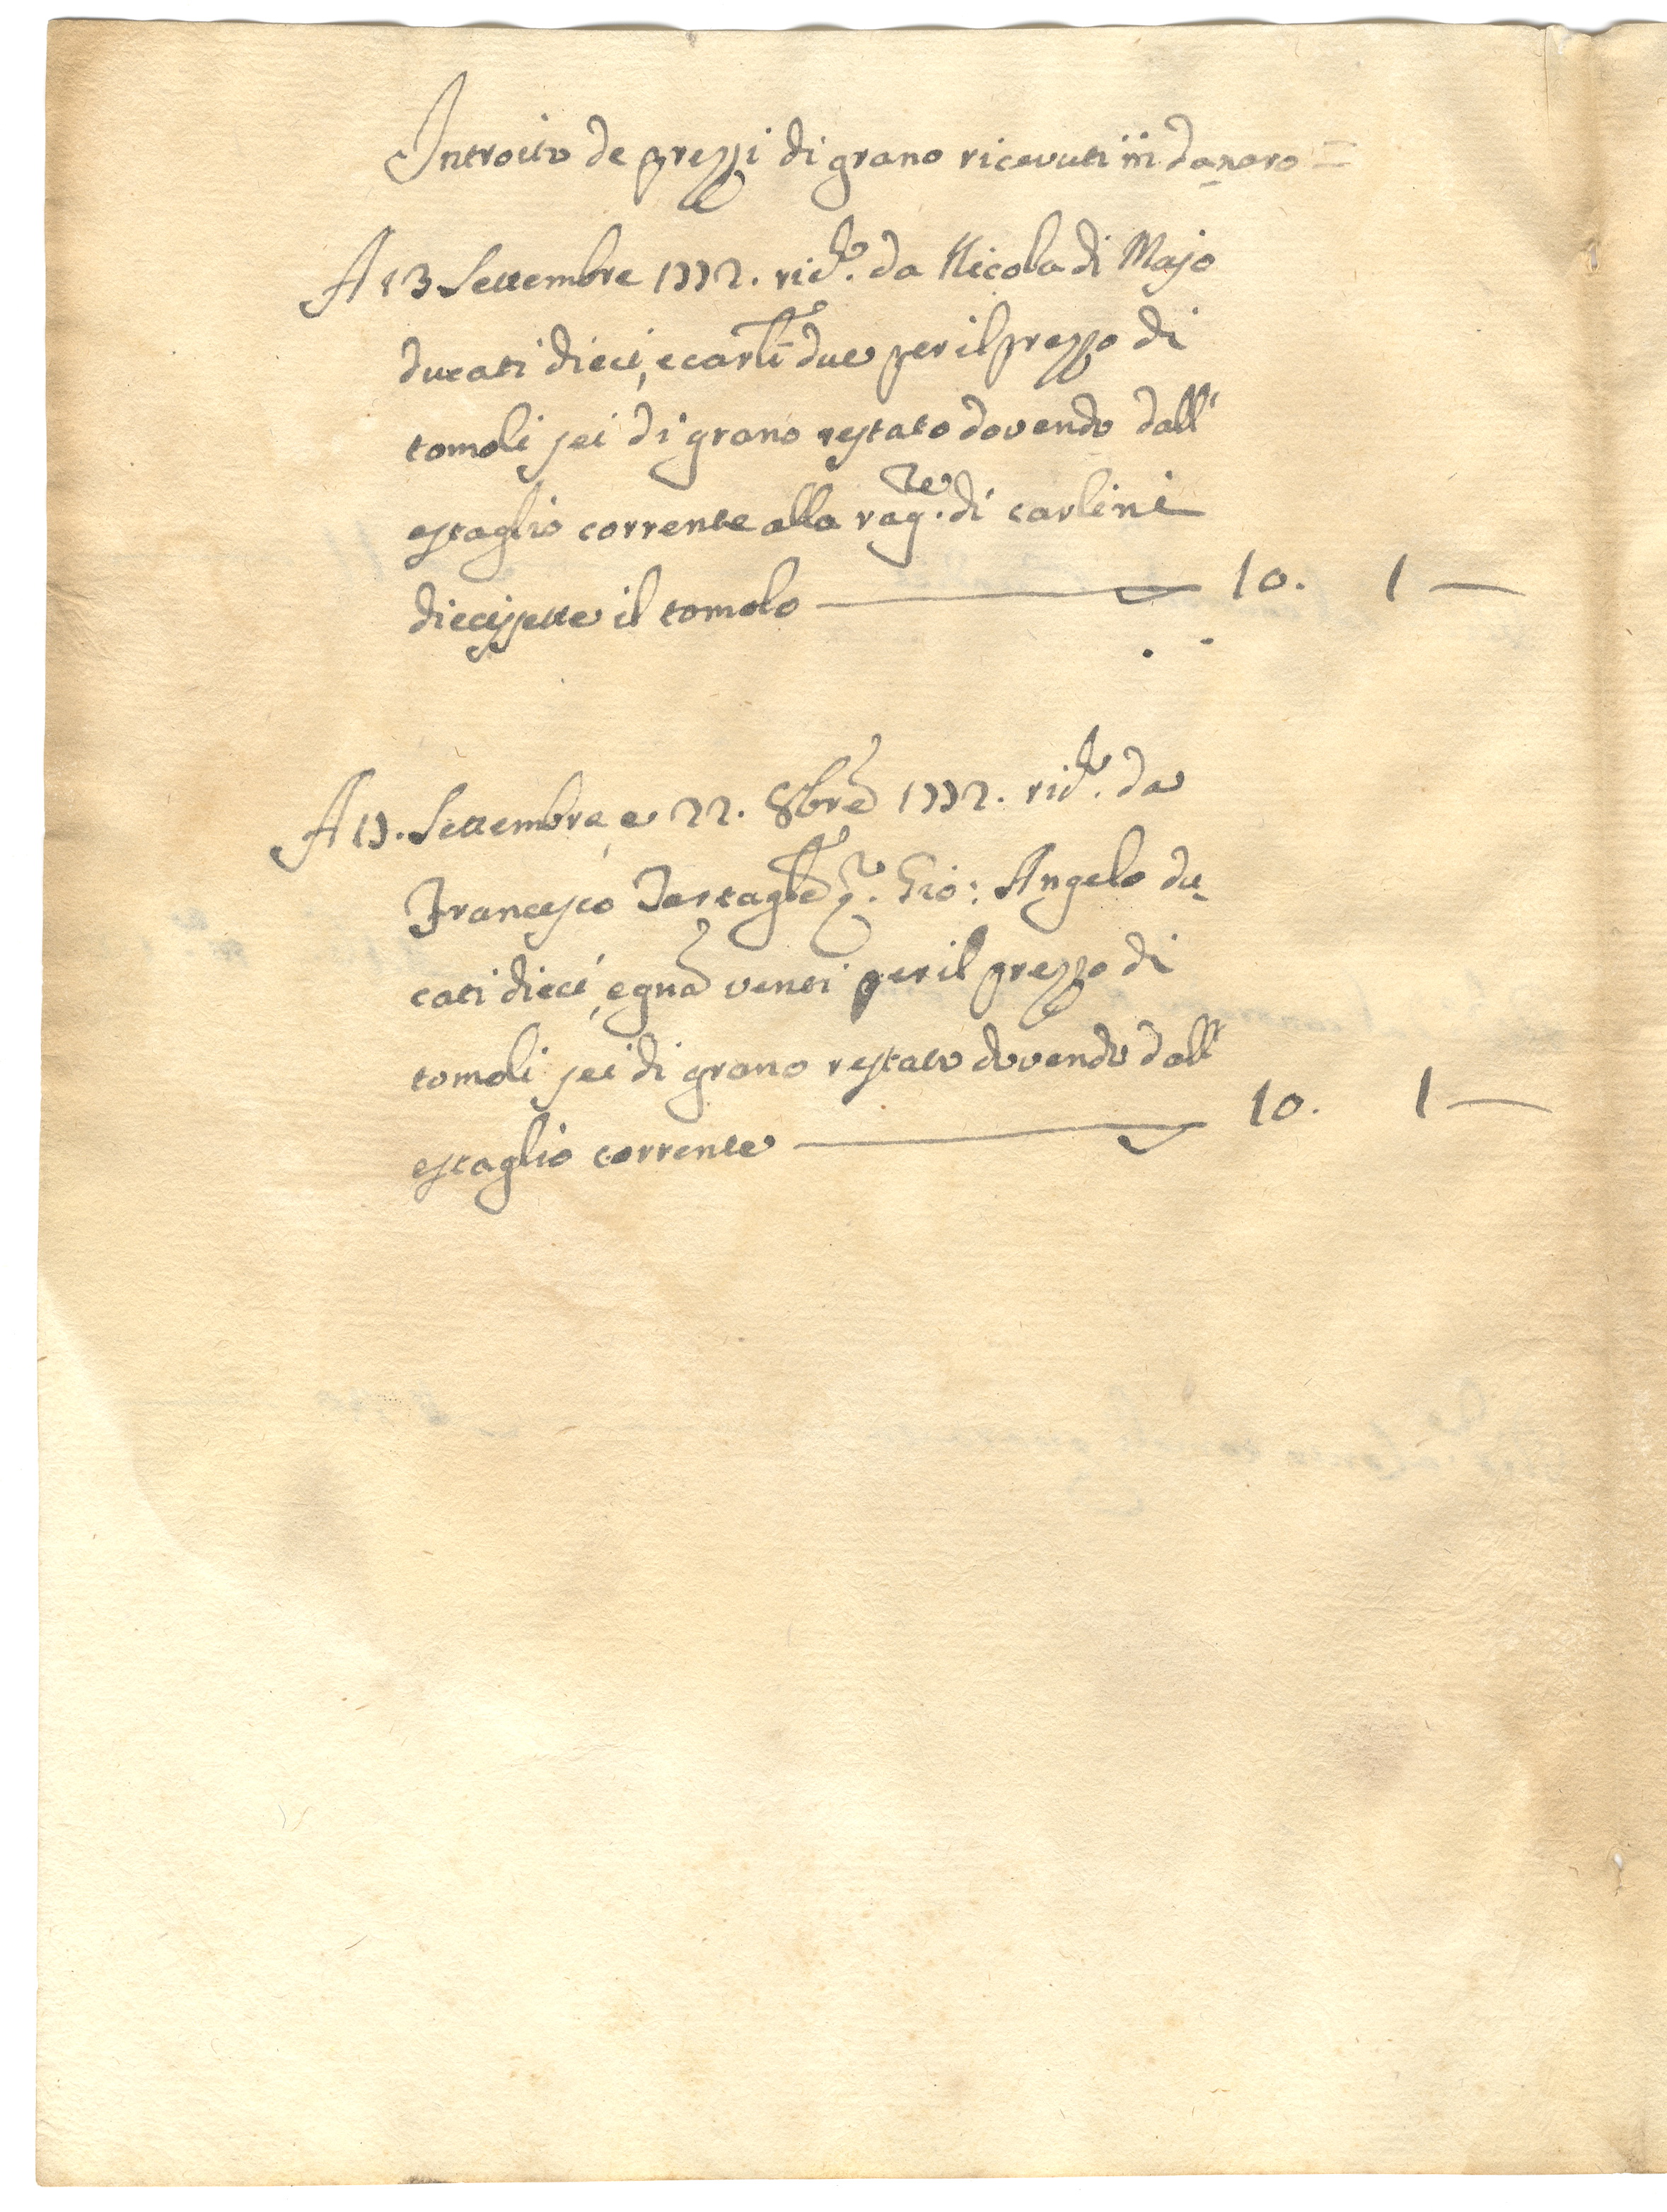 Introito de prezzi di grano ricevuti in danaro =
A 13 Settembre 1772. ric.to da Nicola di Majo
ducati dieci, e carli due per il prezzo di
tomoli sei di grano restato dovendo dall'
estaglio corrente alla rag.ne di carlini
diecisette il tomolo 10. 1 —
A 17. Settembre, e 22. 8bre 1772. ric.to da
Francesco Tartagle q.m Gio: Angelo du-
cati dieci, e gna venti per il prezzo di
tomoli sei di grano restato dovendo dall'
estaglio corrente 10. 1 —